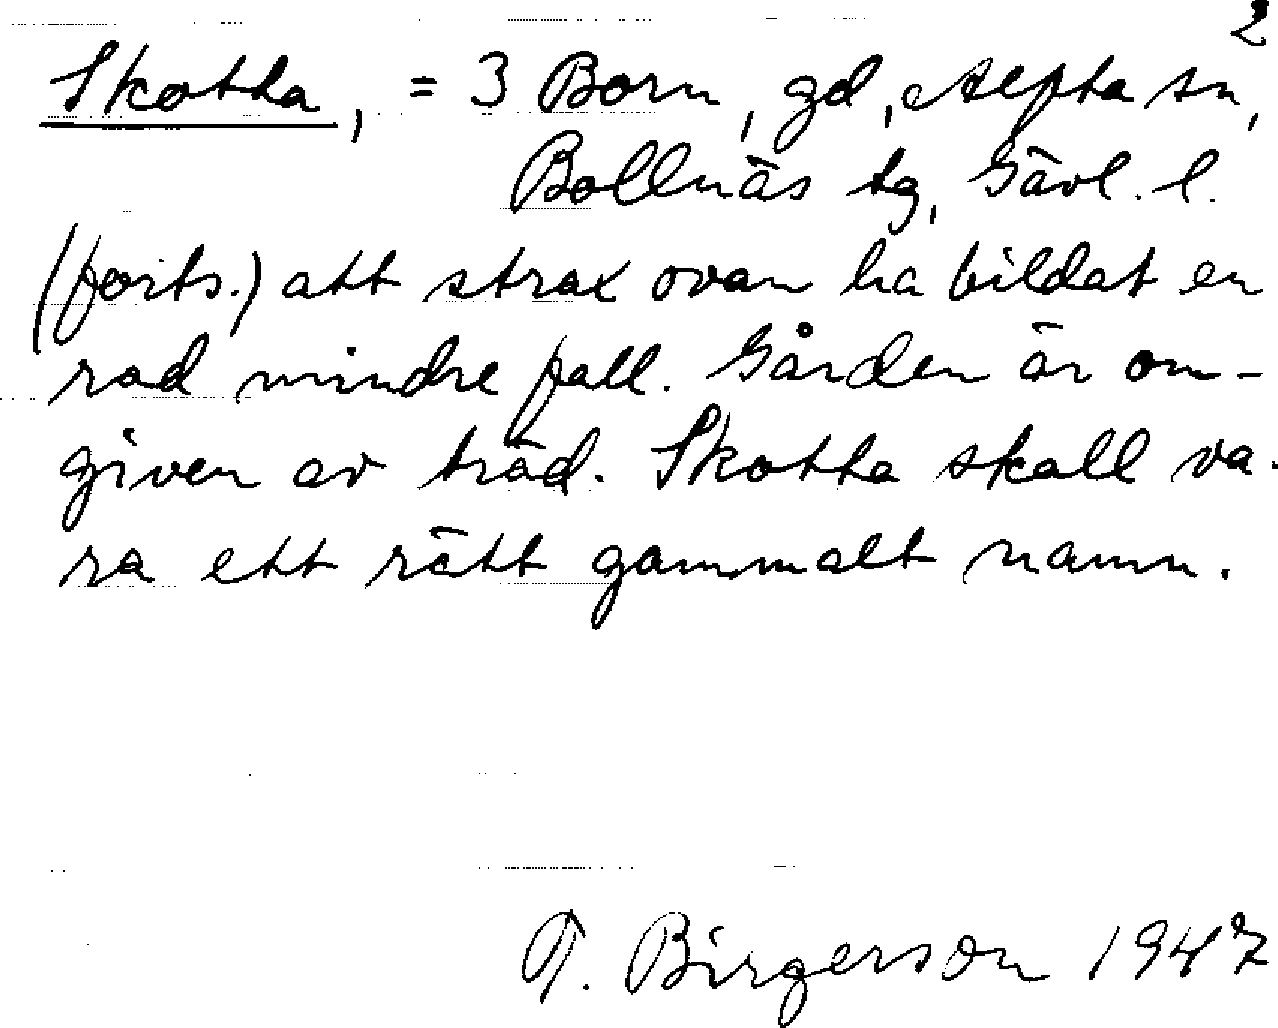 2
Skotta, = 3 Born, gd, Alfta sn,
Bollnäs tg, Gävl. l.
(forts.) att strax ovan ha bildat en
rad mindre fall. Gården är om-
given av träd. Skotta skall va-
ra ett rätt gammalt namn.
T. Birgerson 1947